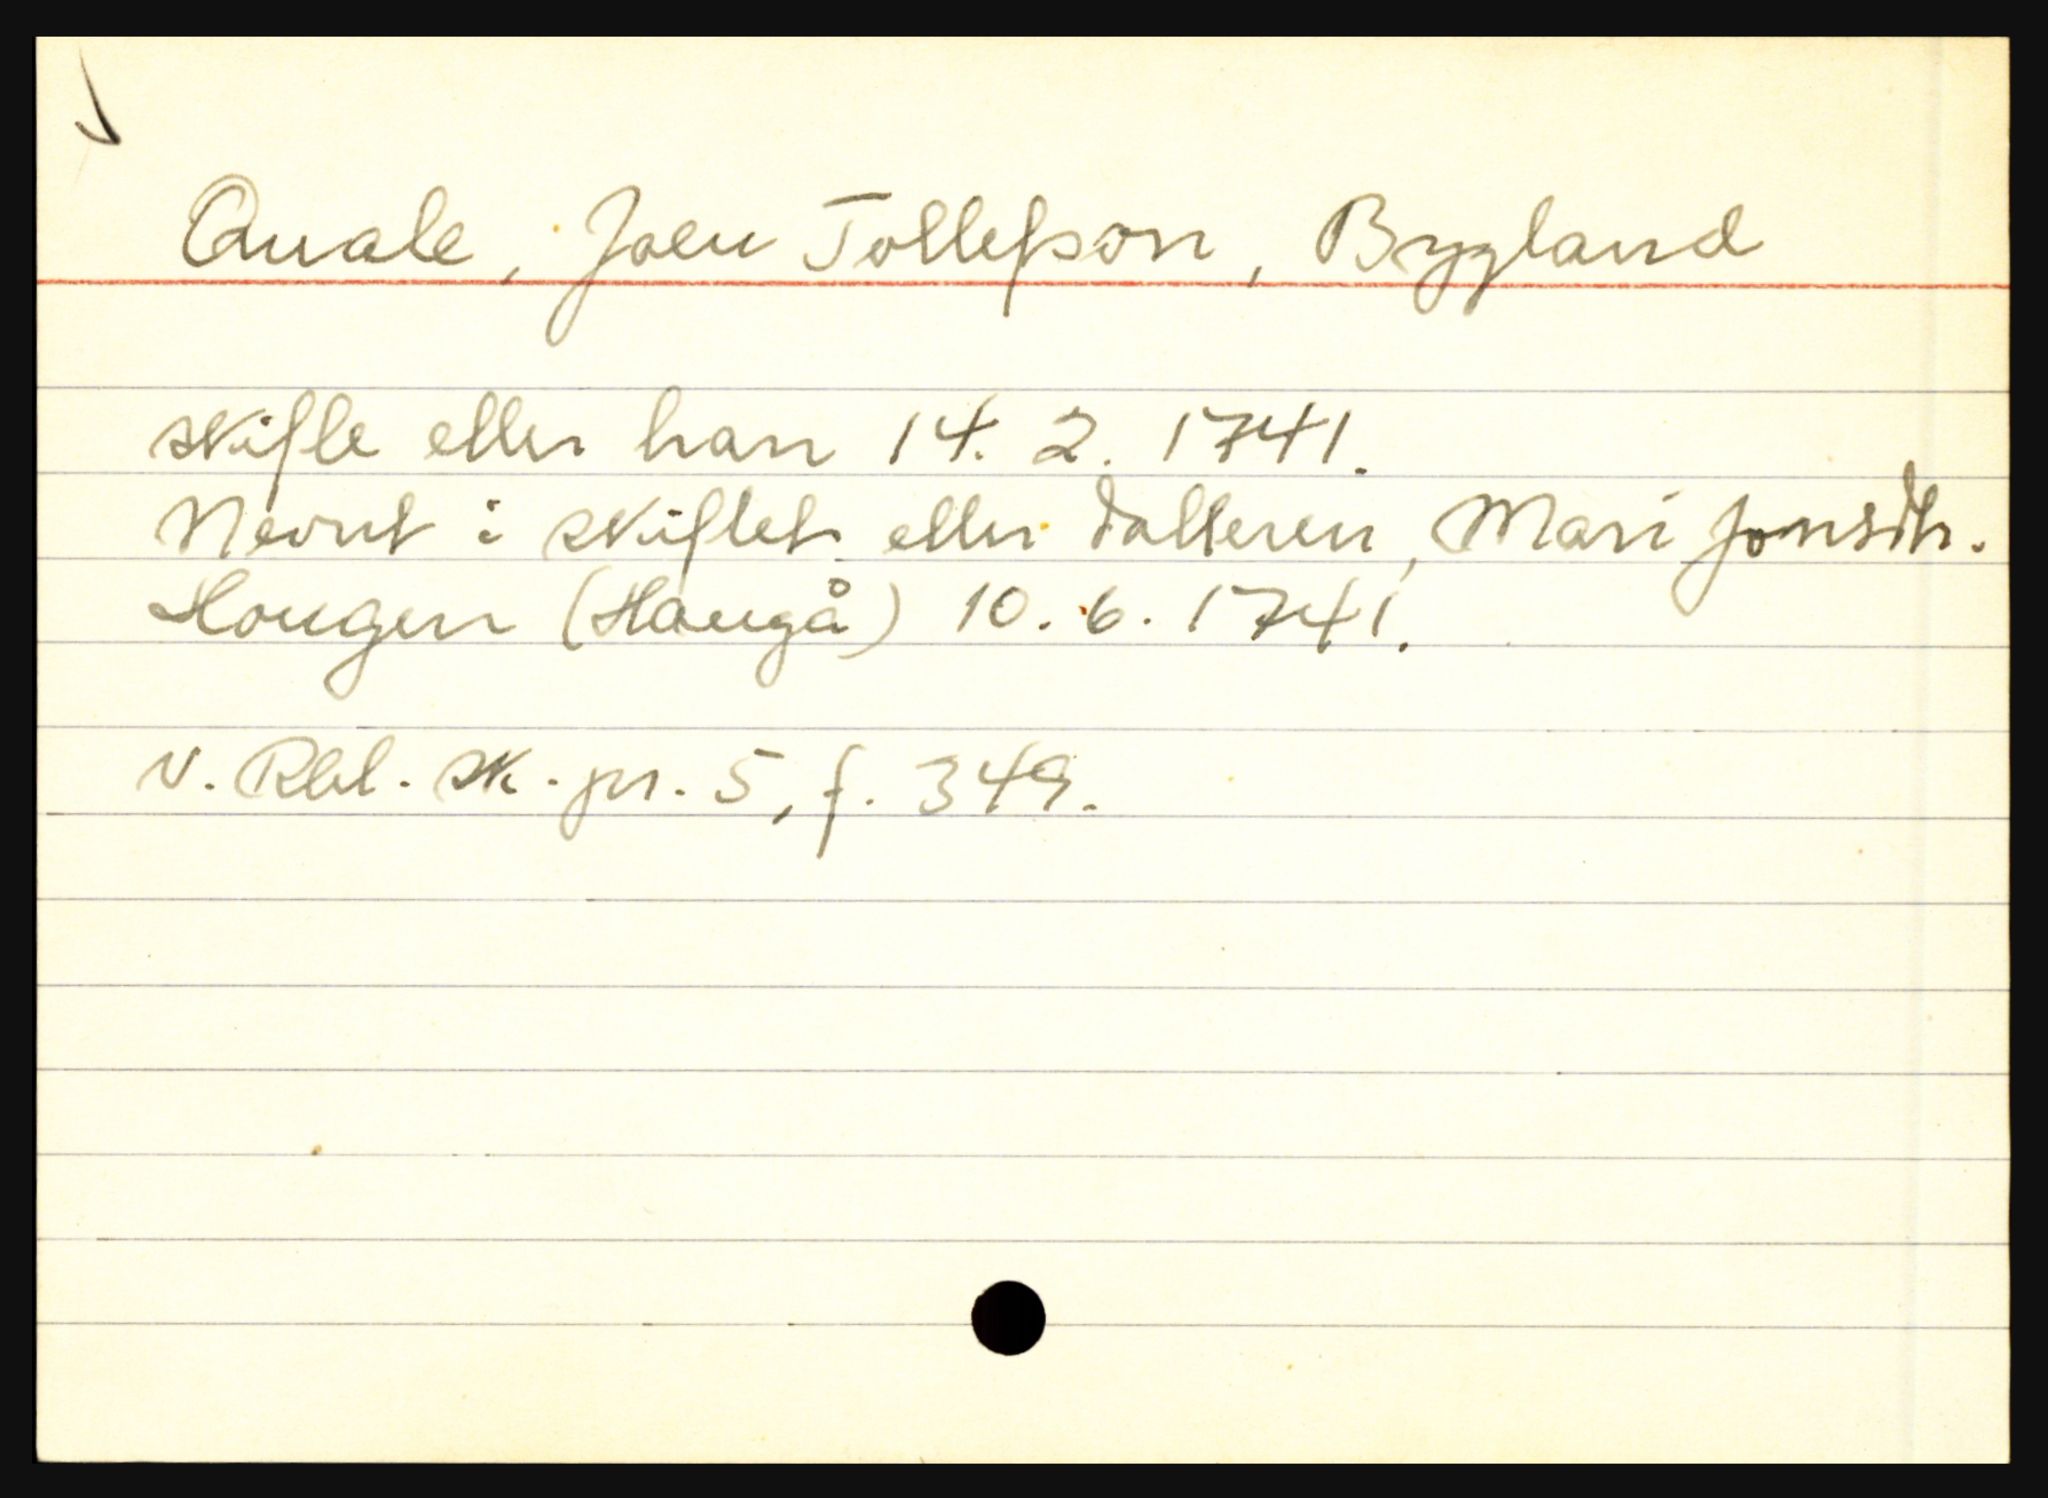 Quale, Joen Tollefson, Bygland
skifte etter han 14. 2. 1741.
Nevnt i skiftet etter dotteren, Mari Jonsdtr.
Hougen (Haugå) 10. 6. 1741.
v. Rbl. sk. pr. 5, f. 349.